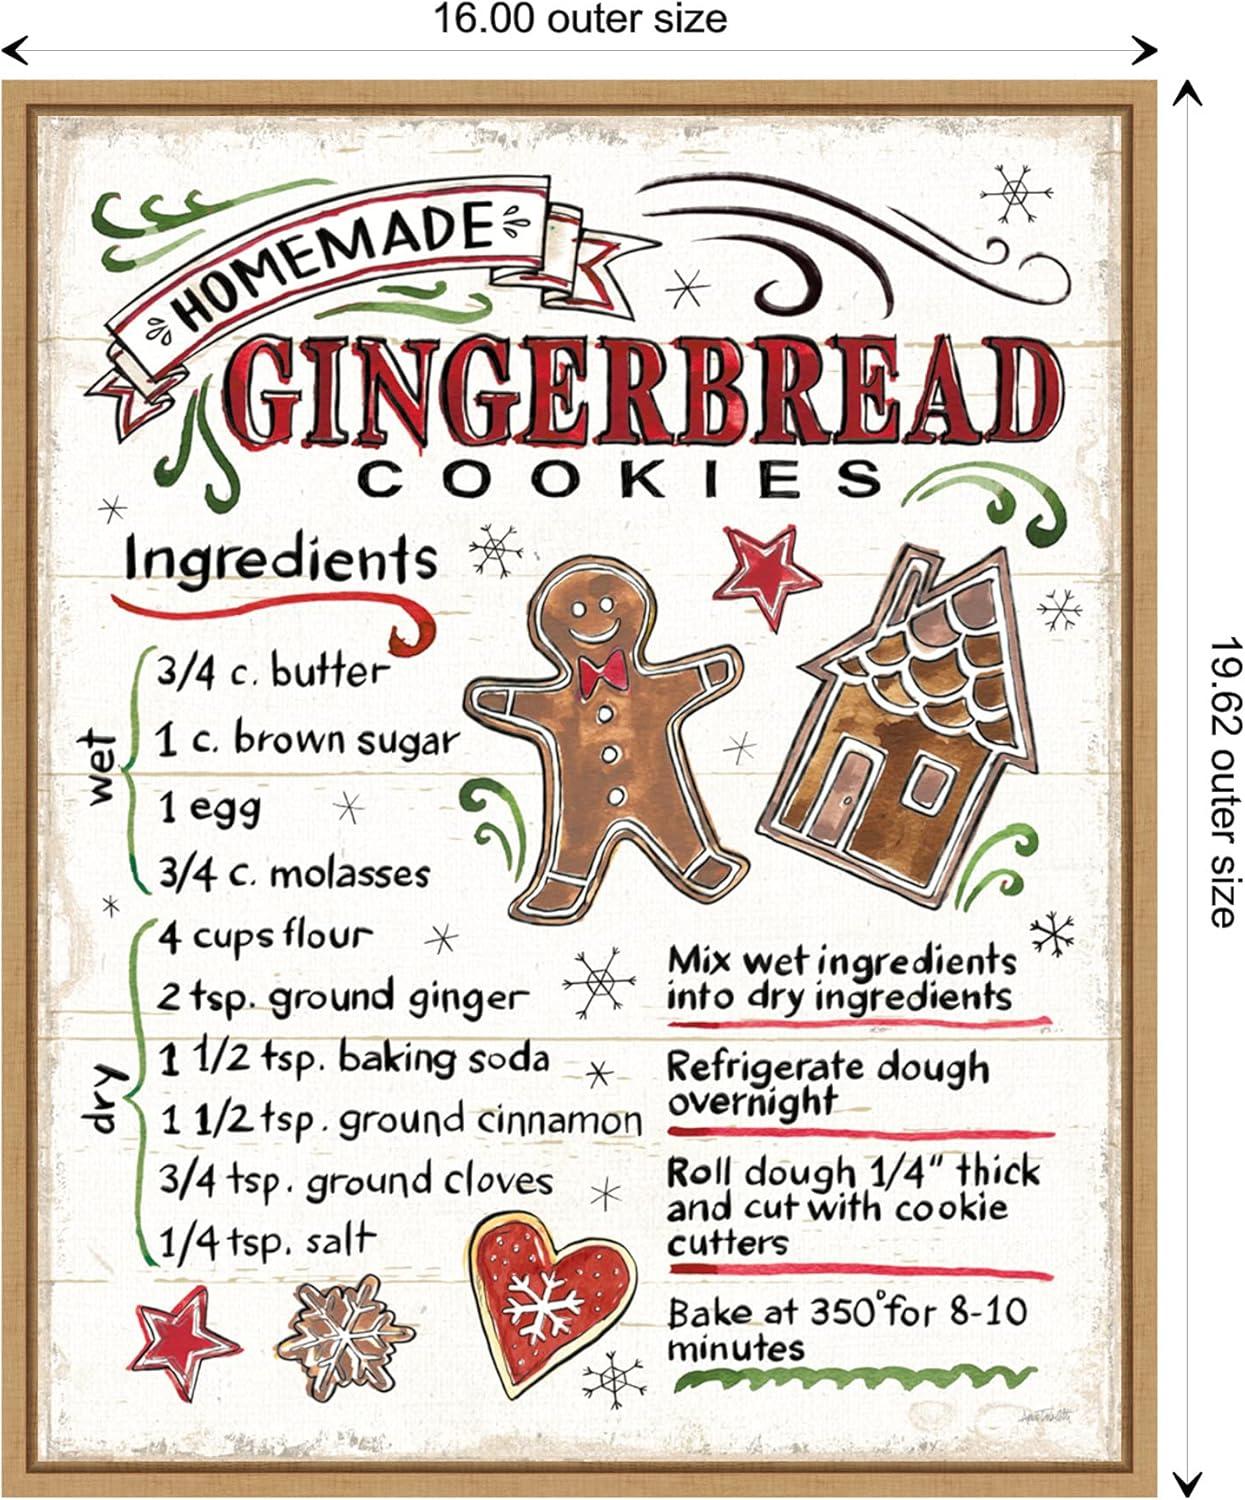 16.00 outer size
HOMEMADE
GINGERBREAD
COOKIES
Ingredients
wet
3/4 c. butter
1 c. brown sugar
1 egg
3/4 c. molasses
dry
4 cups flour
2 tsp. ground ginger
1 1/2 tsp. baking soda
1 1/2 tsp. ground cinnamon
3/4 tsp. ground cloves
1/4 tsp. salt
Mix wet ingredients
into dry ingredients
Refrigerate dough
overnight
Roll dough 1/4" thick
and cut with cookie
cutters
Bake at 350° for 8-10
minutes
19.62 outer size